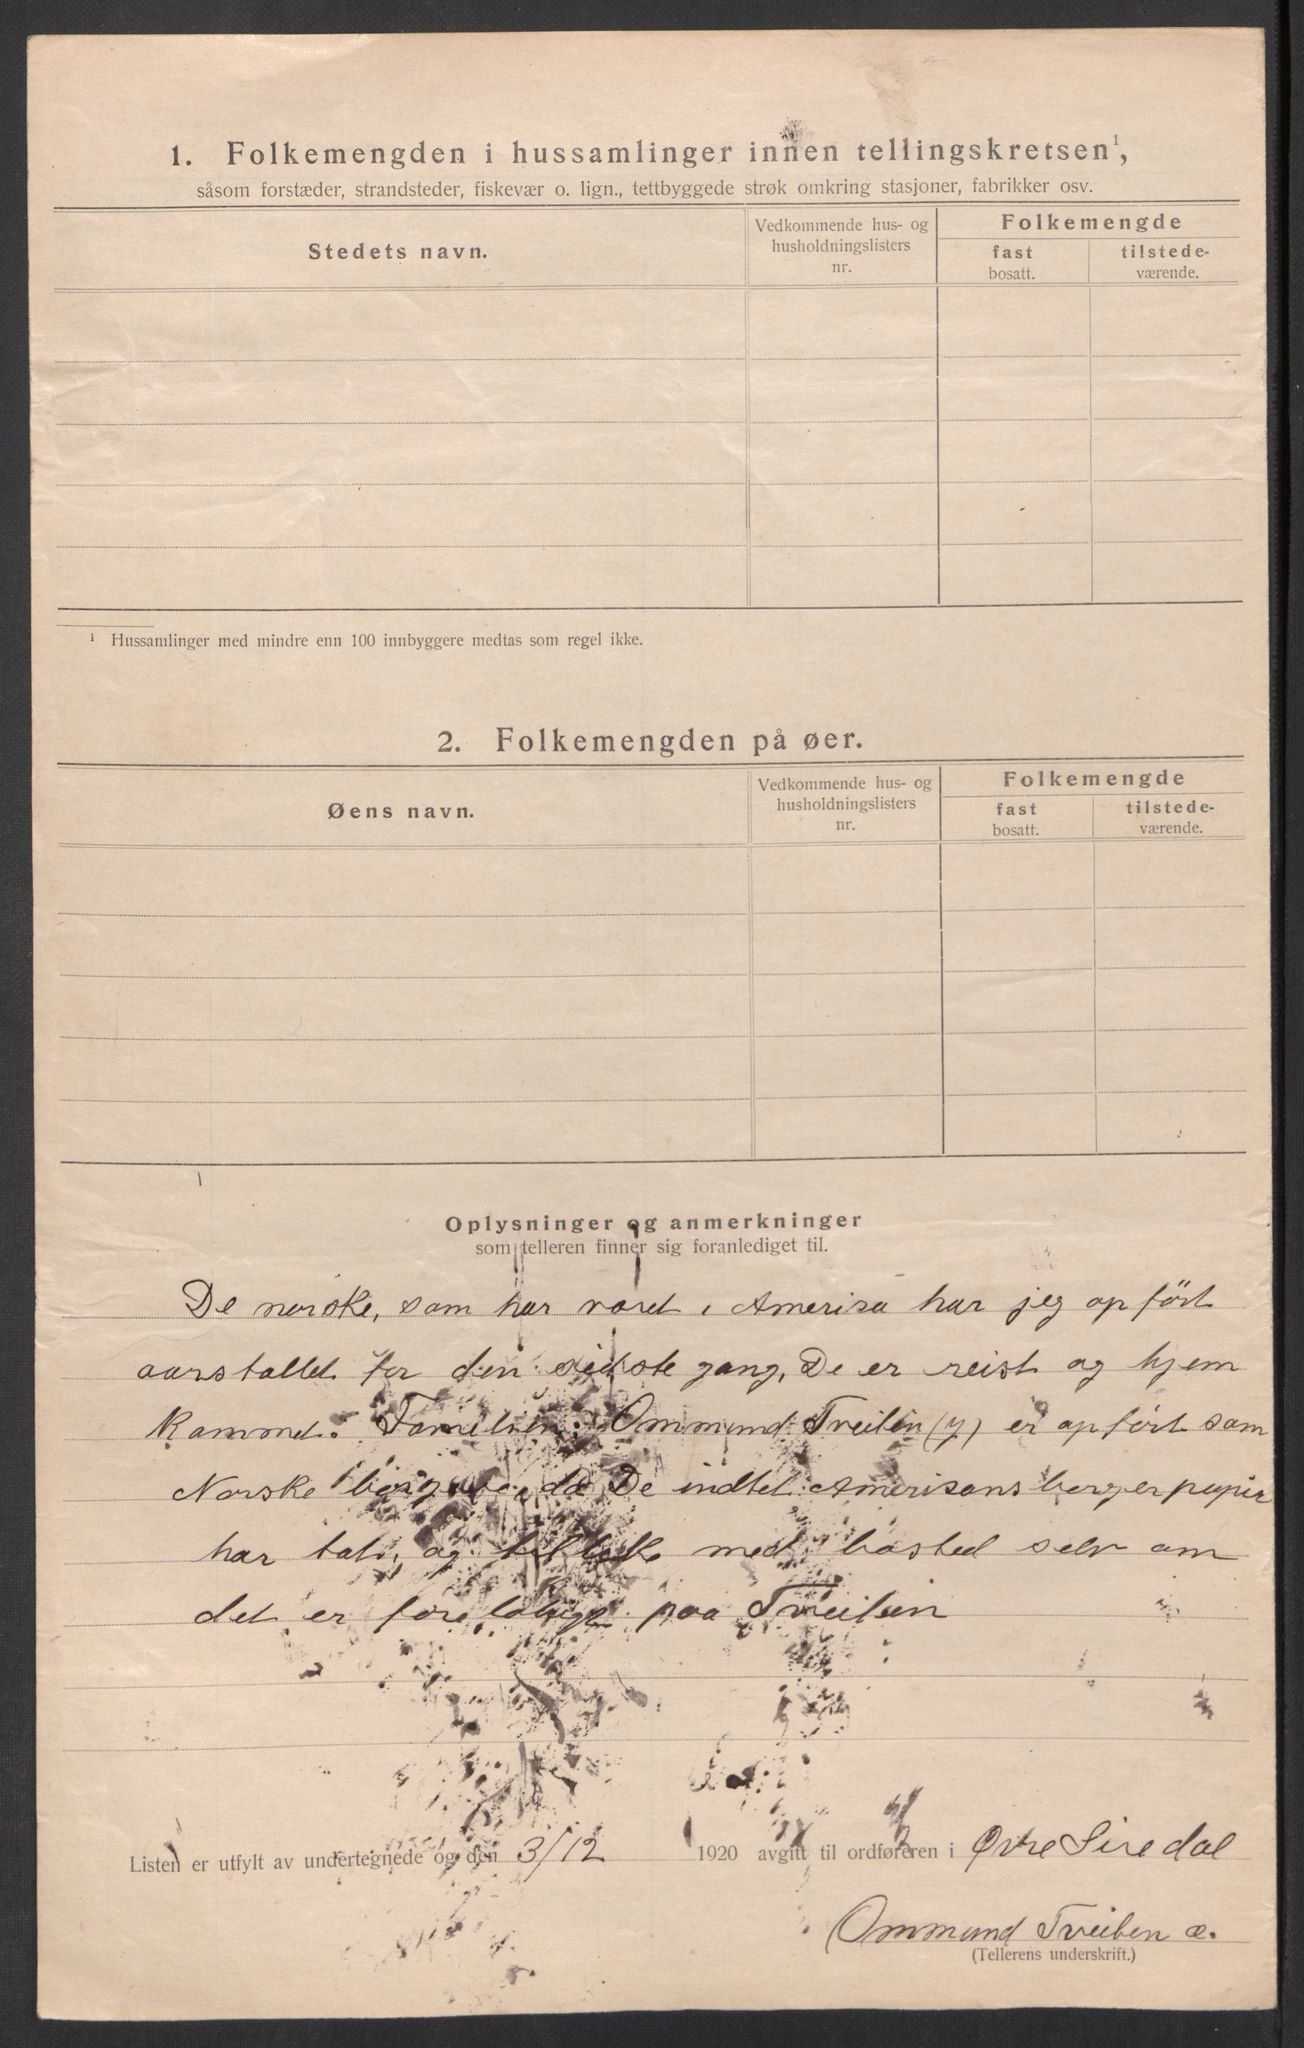 1. Folkemengden i hussamlinger innen tellingskretsen¹,
såsom forstæder, strandsteder, fiskevær o. lign., tettbyggede strøk omkring stasjoner, fabrikker osv.
Stedets navn.
Vedkommende hus- og
husholdningslisters
nr.
Folkemengde
fast
bosatt.
tilstede-
værende.
¹ Hussamlinger med mindre enn 100 innbyggere medtas som regel ikke.
2. Folkemengden på øer.
Øens navn.
Vedkommende hus- og
husholdningslisters
nr.
Folkemengde
fast
bosatt.
tilstede-
værende.
Oplysninger og anmerkninger
som telleren finner sig foranlediget til.
De norske, som har været i Amerika har jeg opført
aarstallet for den sidste gang, De er reist og hjem
kommet. Familien: Ommund Tveiten (y) er opført som
Norske borgere, da De indtet Amerikans borgerpapir
har tat, og med bosted selv om
det er foreløbige paa Tveiten
Listen er utfylt av undertegnede og den 3/12 1920 avgitt til ordføreren i Øvre Siredal
Ommund Tveiten æ.
(Tellerens underskrift.)